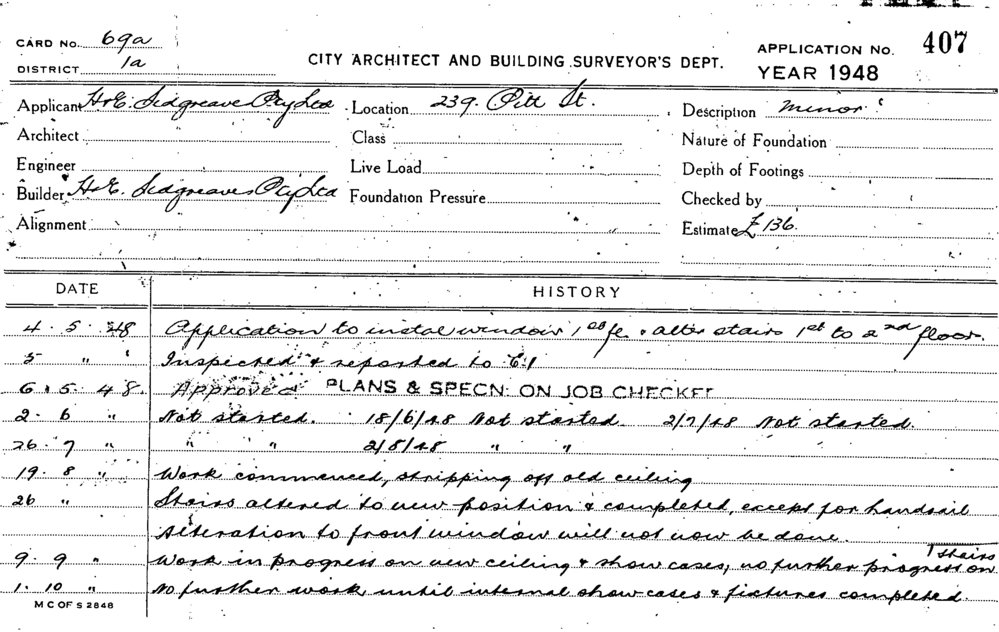 CARD No. 69a
DISTRICT 1a
CITY ARCHITECT AND BUILDING SURVEYOR'S DEPT.
APPLICATION No. 407
YEAR 1948
Applicant H & E. Sidgreaves Pty Ltd Location 239. Pitt St. Description minor
Architect Class Nature of Foundation
Engineer Live Load Depth of Footings
Builder H & E. Sidgreaves Pty Ltd Foundation Pressure Checked by
Alignment Estimate £136.
DATE HISTORY
4. 5. 48 Application to instal window 1st fl. & alter stairs 1st to 2nd floor.
5 " ' Inspected & reported to
6. 5. 48. Approved PLANS & SPECN: ON JOB CHECKED
2. 6 " Not started. 18/6/48 Not started. 2/7/48 Not started.
26. 7 " " " 2/8/48 " "
19. 8 " Work commenced, stripping off old ceiling
26 " Stairs altered to new position & completed, except for handrail
Alteration to front window will not now be done.
9. 9 " Work in progress on new ceiling & show cases, no further progress on stairs
1. 10 " No further work until internal show cases & fixtures completed.
M C OF S 2848